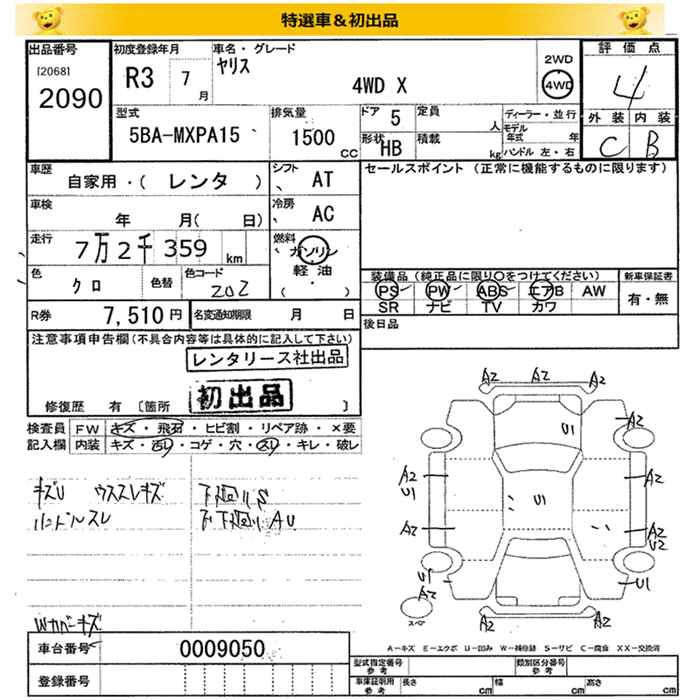 特選車&初出品
出品番号
[2068]
2090
初度登録年月
R3 7
月
車名・グレード
ヤリス
4WD X
2WD
4WD
評価点
4
外装 内装
C B
型式
5BA-MXPA15
排気量
1500
CC
ドア 5
定員
人
形状 HB
積載
kg
ディーラー・並行
モデル年式 年
ハンドル 左・右
車歴
自家用・( レンタ )
シフト
AT
車検
年 月( 日)
冷房
AC
走行
7万2千359 km
燃料
ガソリン
軽油
・( )
色
クロ
色替
色コード
202
R券
7,510円
名変通知期限 月 日
セールスポイント (正常に機能するものに限ります)
装備品 (純正品に限り○をつけてください)
PS PW ABS エアB AW
SR ナビ TV カワ
新車保証書
有・無
後日品
注意事項申告欄(不具合内容等は具体的に記入して下さい)
レンタリース社出品
初出品
修復歴 有 〔箇所 〕
検査員 FW キズ・飛石・ヒビ割・リペア跡・×要
記入欄 内装 キズ・汚レ・コゲ・穴・スレ・キレ・破レ
キズU ウススレキズ
ハンドルスレ
下廻リS
下廻リAU
Wカバーキズ
A2 A2 A2
U1
A2
U1
A2
U1
A2
A2
U2
U1
A2
U1
スペア
A2 A2 A2
A-キズ E-エクボ U-凹み W-補修跡 S-サビ C-腐食 XX-交換済
車台番号
0009050
登録番号
型式指定番号
参考
類別区分番号
参考
車庫証明用
参考
長さ cm 幅 cm 高さ cm